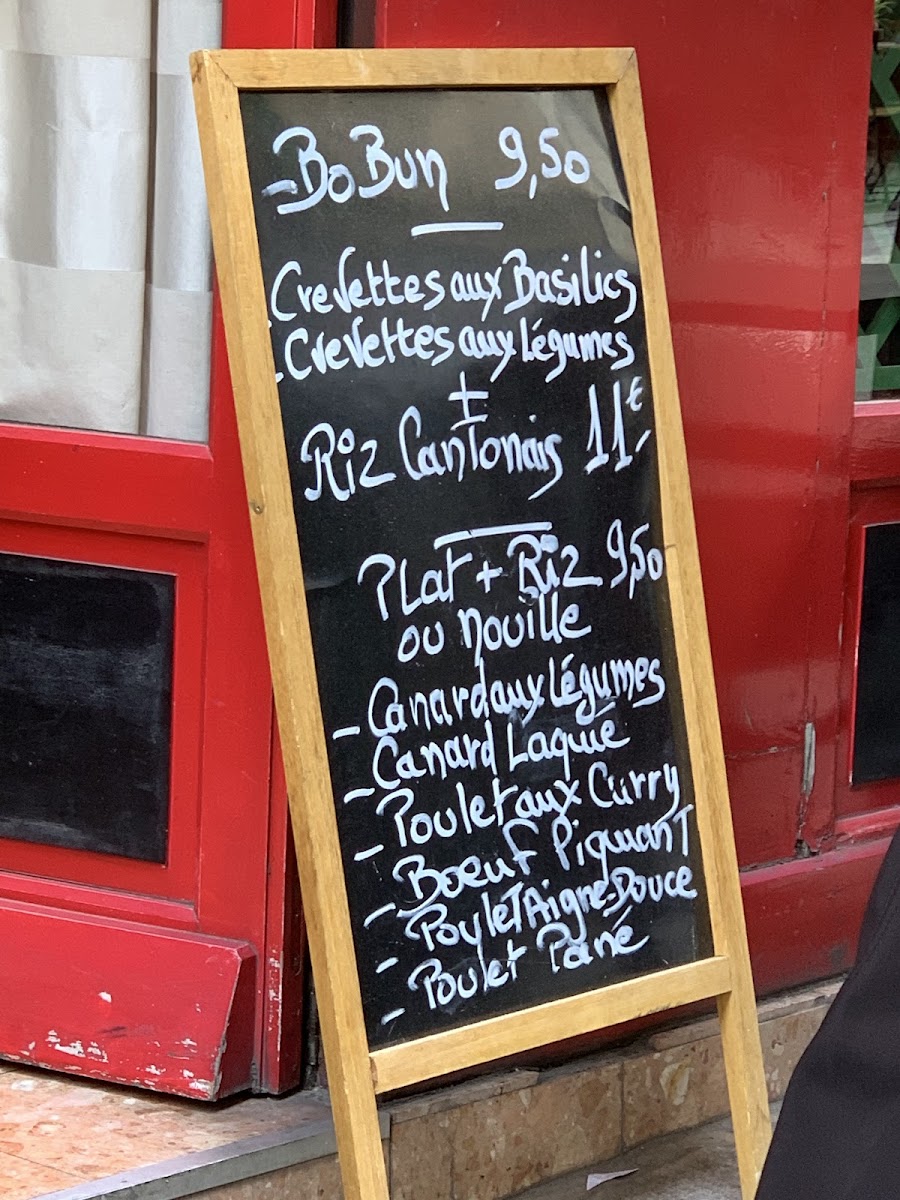 - Bo Bun 9,50
- Crevettes aux Basilics
- Crevettes aux Légumes
+
Riz Cantonais 11€,-
Plat + Riz 9,50
ou nouille
- Canard aux Légumes
- Canard Laquié
- Poulet aux Curry
- Boeuf Piquant
- Poulet Aigre-Douce
- Poulet Pané